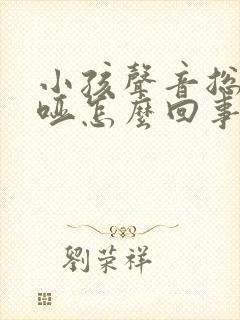 小孩聲音総
啞怎麼回事
劉荣祥